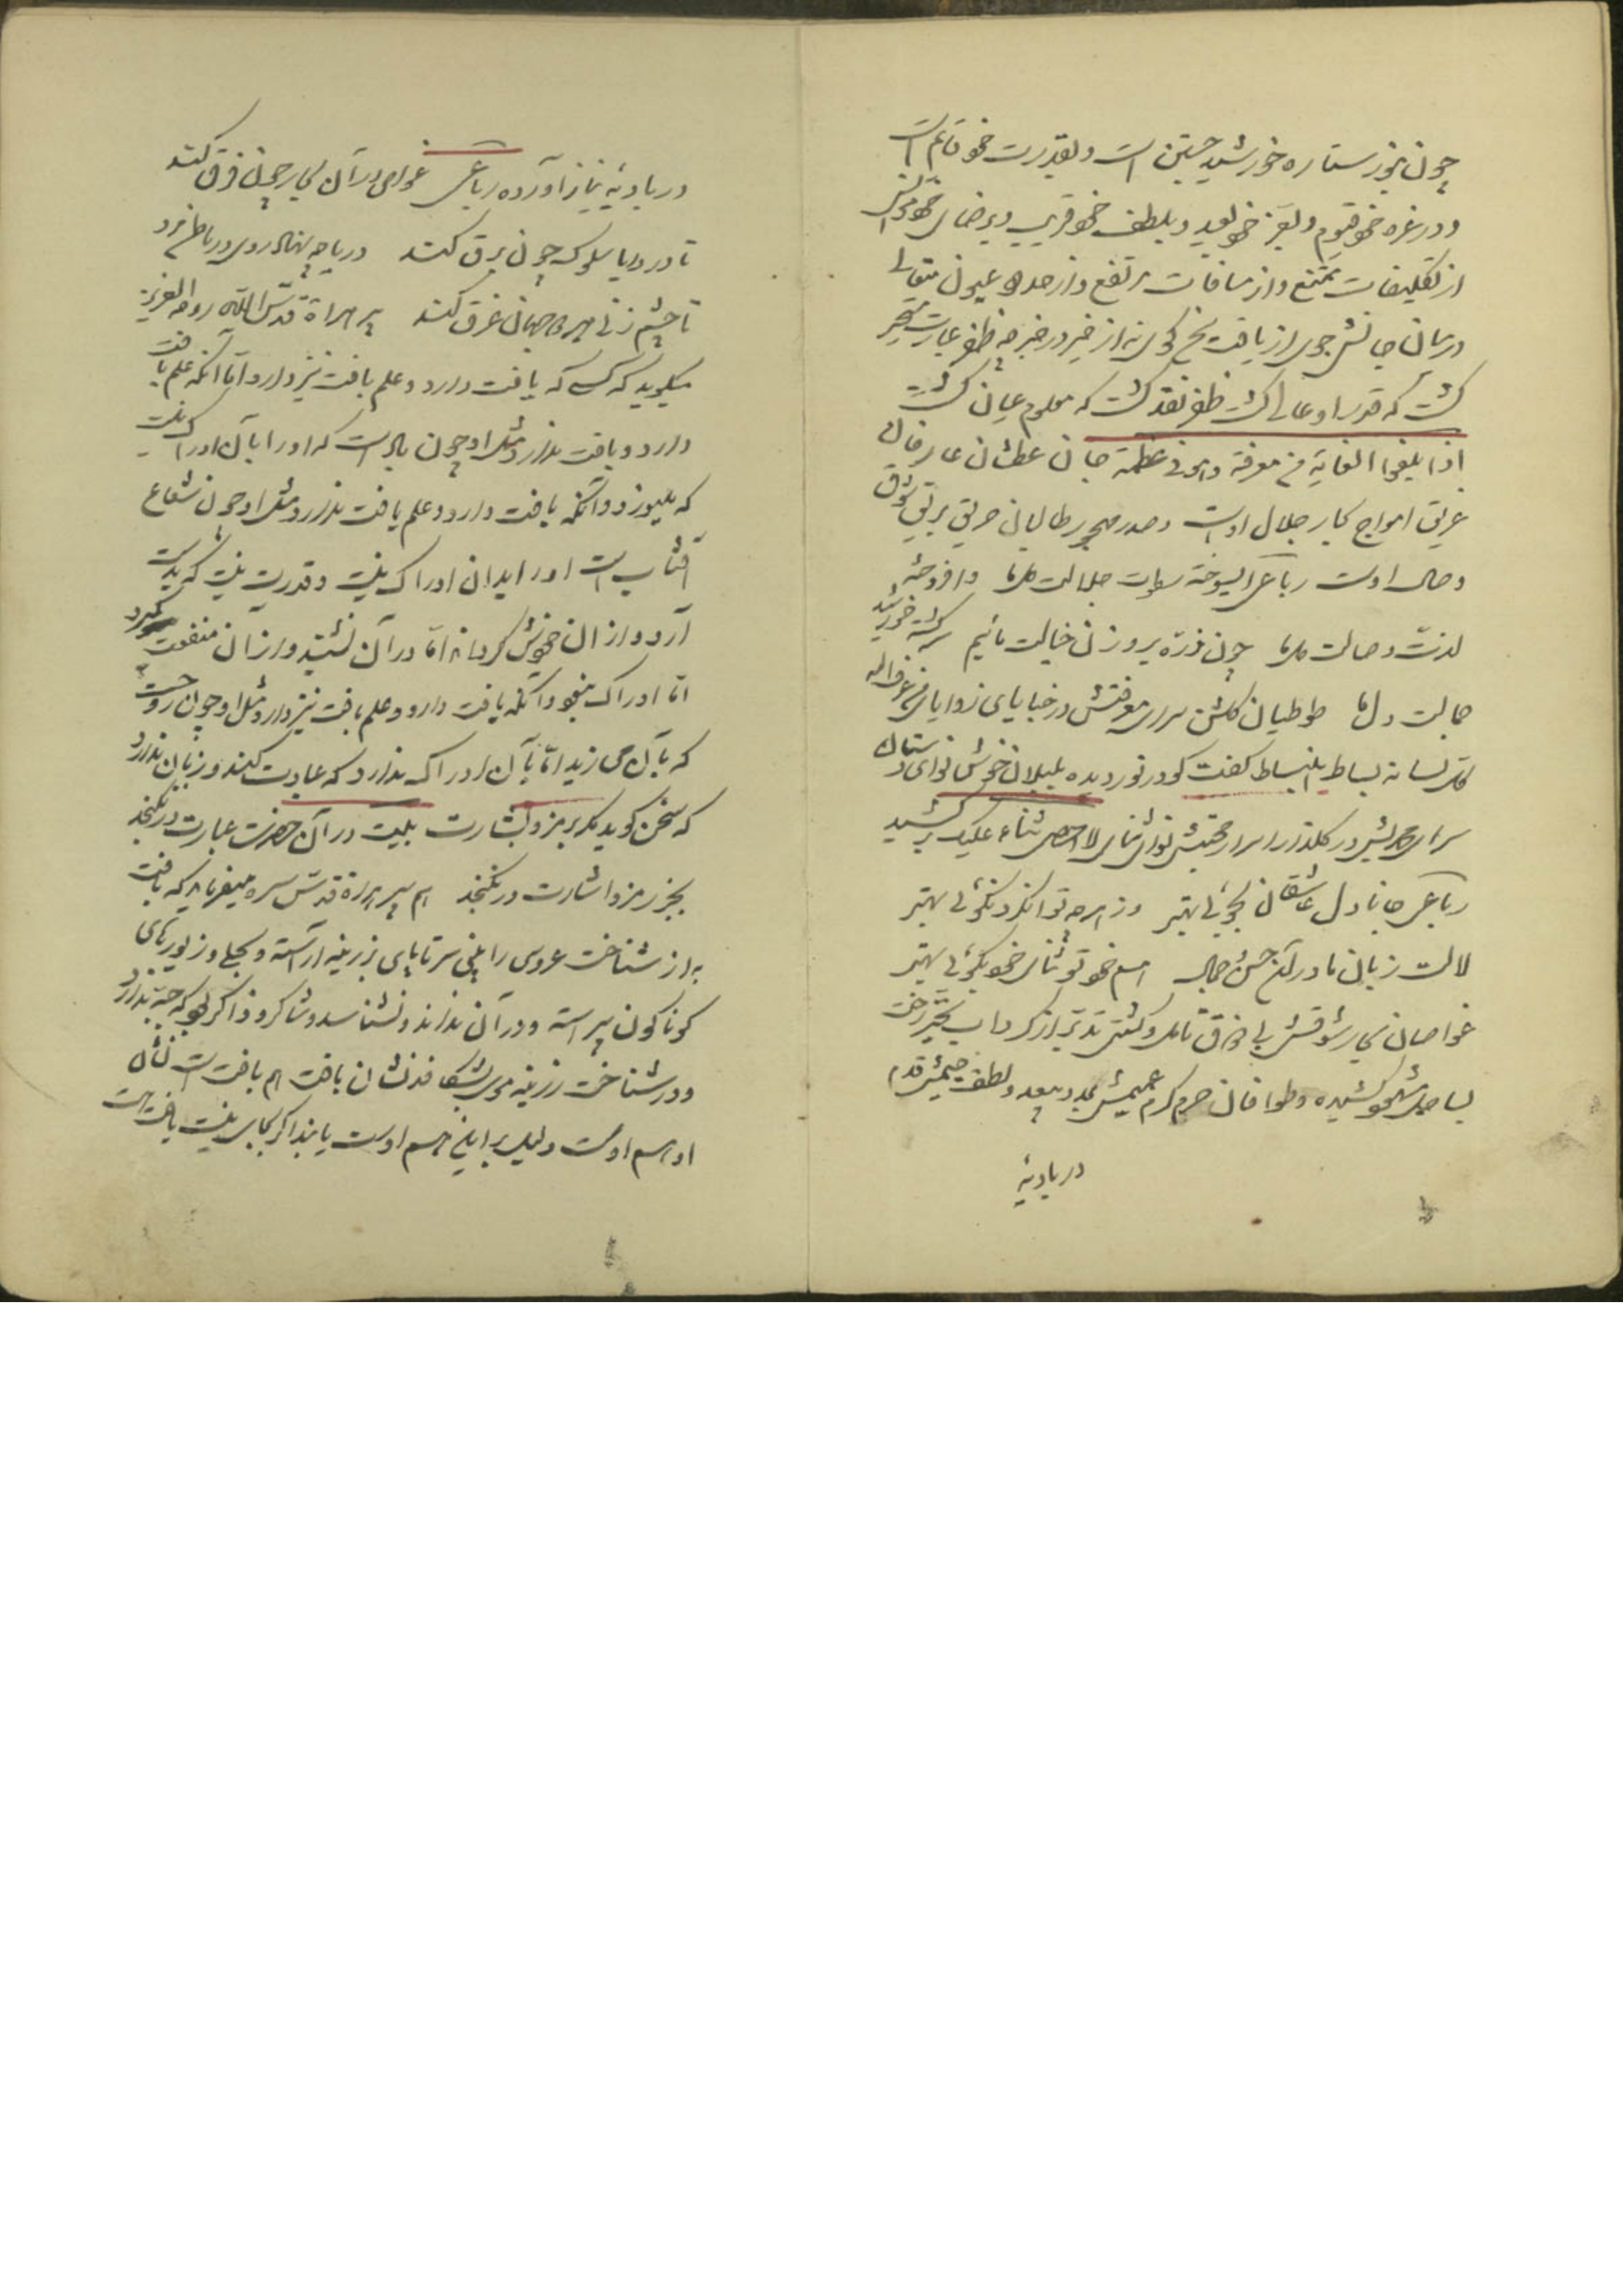 چون بنور ستاره خورشید جبین است و بقدرت خود قائم است
و در عزه خود قیوم و بعز خود بعید و بلطف خود قریب و برضای خود مونس
از تکلیفات ممتنع و از مسافات مرتفع و از حدود عیون متعالی
در میان جانش جوی از یافت سخن گوی نه از خبر در خبر چه ظن عبارت متحیر
گشت که قدر او عالی گشت ظن نقد گشت که معلوم عیان گشت
اذا بلغوا الغایة فی معرفة وهو فی عظمة جان عطشان عارفان
غریق امواج بحار جلال اوست و صدر مهجور طالبان حریق بریق شوق
وصال اوست رباعی ای سوخته سطوات جلالت دلها وافروخته
لذت وصالت دلها چون ذره بروزن خیالت مائیم سرگشته خورشید
جمالت دلها طوطیان گلشن سرای معرفتش در خبایای زوایای من عرف الله
کل لسانه بساط انبساط گفت کو در نوردیده بلبلان خوش نوای دستان
سرای محمدتش در گلذار اسرار محبتش نوای ثنای لا احصی ثناء علیک برکشید
رباعی جانا دل عاشقان بجوئی بهتر وز هرچه توانکرد نکوئی بهتر
لالست زبان ما در آن حسن و جمال هم خود تو ثنای خود بگوئی بهتر
غواصان بحار شوقش بی زورق تأمل و کشتی تدبر از گرداب تحیر رخت
بساحل شهود کشیده و طوافان حرم کرم عمیمش بمدد سعد و لطف جسیمش قدم
در بادیۀ
در بادیۀ نیاز آورده رباعی غواص در آن بحار چون فرق کند
تا در دریا سلوک چون برق کند دریا چه نهاد روی در باطن مرد
تا چشم زنی هر دو جهان غرق کند پیر هراة قدس الله روحه العزیز
میگوید که کسی که یافت دارد و علم یافت نیز دارد اما آنکه علم یافت
دارد و یافت ندارد مثل او چون بادست که او را با آن ادراک نیست
که میوزد و آنکه یافت دارد و علم یافت ندارد مثل او چون شعاع
آفتاب است او را بدان ادراک نیست و قدرت نیست که بدست
آرد و از آن خویش گرداند اما در آن نشیند و از آن منفعت گیرد
اما ادراک نبود و آنکه یافت دارد و علم یافت نیز دارد مثل او چون روحست
که بآن می زید اما بآن ادراک ندارد که عبارت کند و زبان ندارد
که سخن گوید مگر برمز و بشارت بیت در آن حضرت عبارت در نگنجد
بجز رمز و اشارت در نگنجد هم پیر هراة قدس سره میفرماید که یافت
نه از شناخت عروسی را بینی سرتاپای بزرینه آراسته و بحلی و زیورهای
گوناگون پیراسته و در آن نداند و نشناسد و شاکر و ذاکر بود که حبه ندارد
و در شناخت زرینه موی بشکافد نشان یافت هم یافت است نشان
او هم اوست دلیل برائی هم اوست یا بنده اگر بجای نیست یافت هست